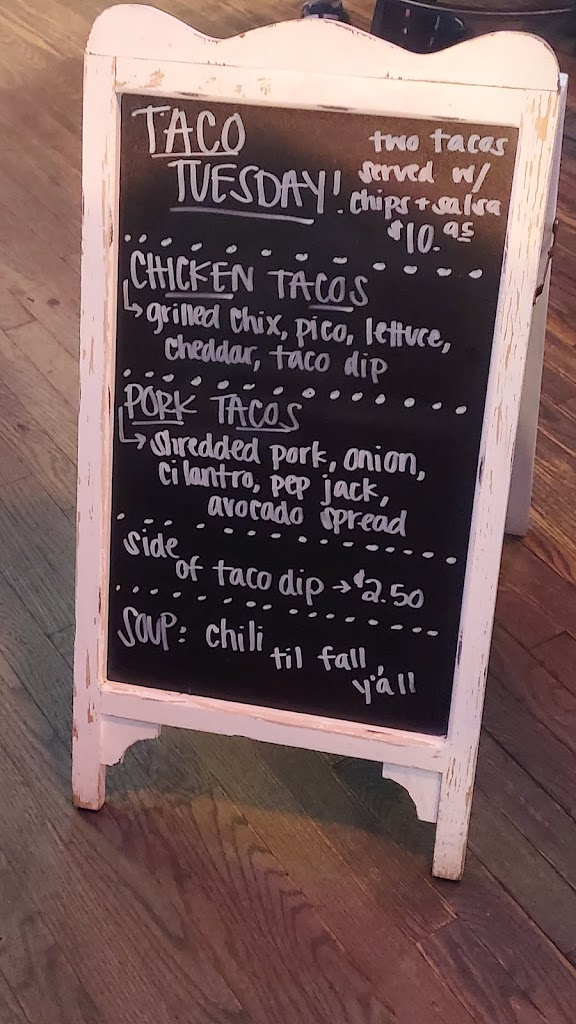 TACO
TUESDAY!
two tacos
served w/
chips + salsa
$10.95
CHICKEN TACOS
↳ grilled chix, pico, lettuce,
cheddar, taco dip
PORK TACOS
↳ shredded pork, onion,
cilantro, pep jack,
avocado spread
side
of taco dip → $2.50
SOUP: chili
til fall,
y'all